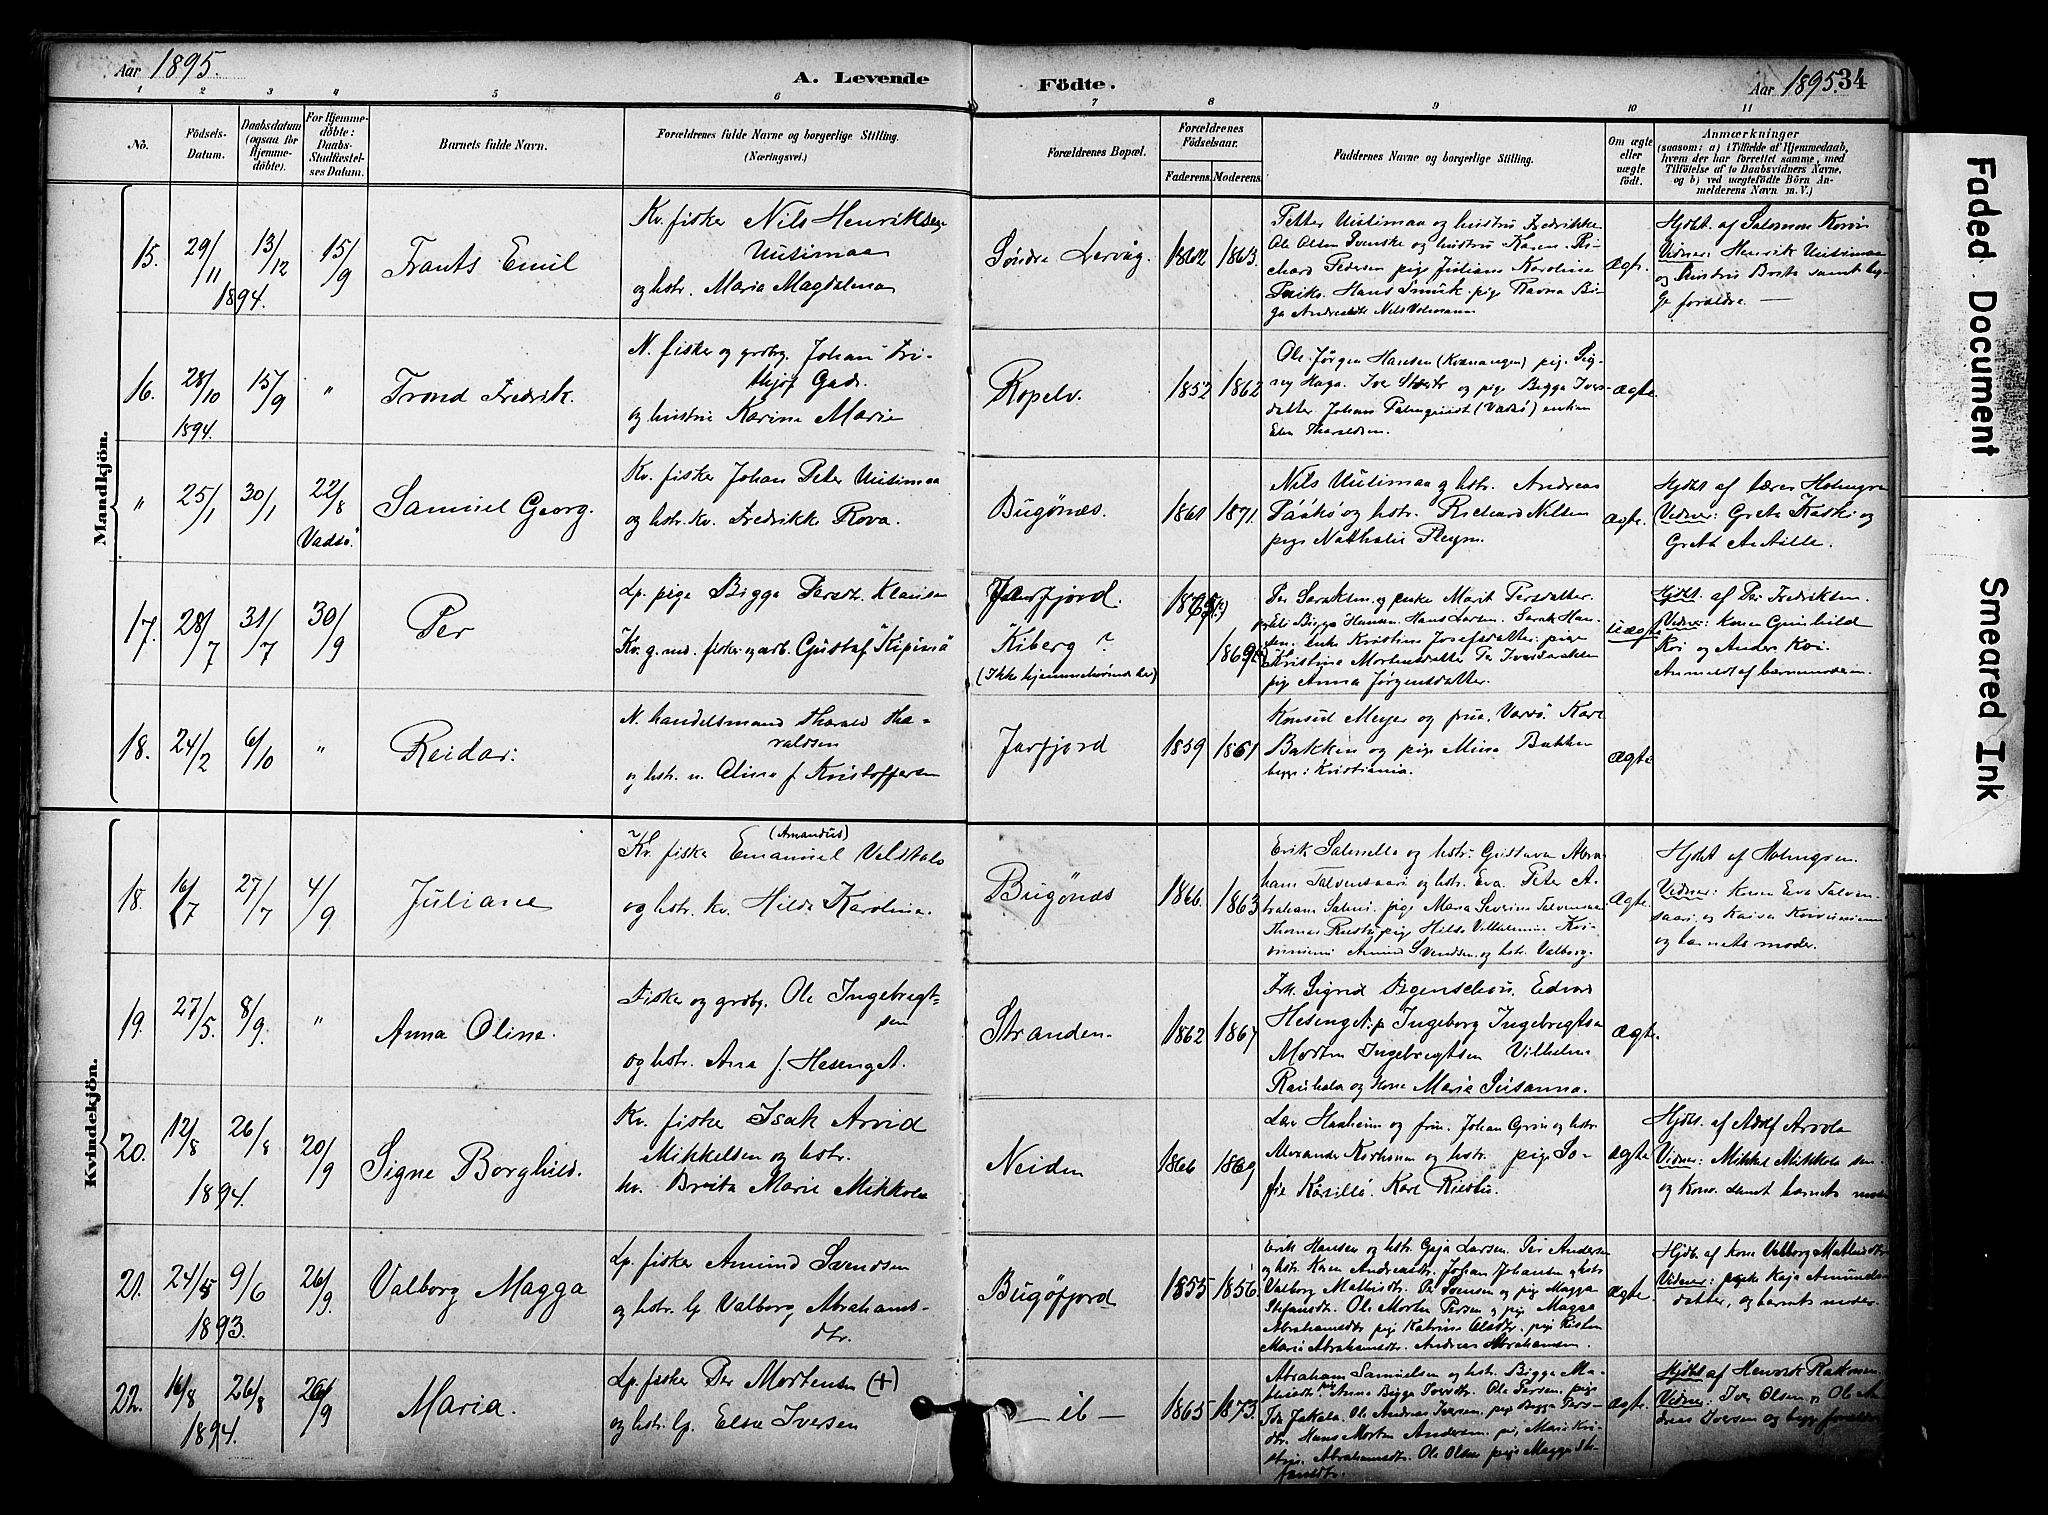 Aar 1895.
A. Levende
Födte.
Aar 1895. 34
1 2 3 4 5 6 7 8 9 10 11
Nô.
Födsels-
Datum.
Daabsdatum
(ogsaa for
Hjemme-
döbte).
For Hjemme-
döbte:
Daabs-
Stadfæstel-
ses Datum.
Barnets fulde Navn.
Forældrenes fulde Navne og borgerlige Stilling.
(Næringsvei.)
Forældrenes Bopæl.
Forældrenes
Födselsaar.
Faderens. Moderens.
Faddernes Navne og borgerlige Stilling.
Om ægte
eller
uægte
födt.
Anmærkninger
(saasom: a) i Tilfælde af Hjemmedaab,
hvem der har forrettet samme, med
Tilföielse af to Daabsvidners Navne,
og b) ved uægtefödte Börn An-
melderens Navn m. V.)
Mandkjön.
15. 29/11 1894. 13/12 15/9
Frants Emil
Kv. fisker Nils Henriksen
Uutimaa
og hstr. Maria Magdalena
Söndre Lervåg. 1862 1863.
Petter Uutimaa og hustru Fredrikke
Ole Olsen Svenske og hustru Karen. Ri-
chard Pedersen pige Juliane Karoline
Hans Smuk. pige Ravna Bi-
ægte.
Hjdbt. af Salomon
Vidner: Henrik Uutimaa
og hustru Brita samt beg-
ge forældre. —
16. 28/10 1894. 15/9 "
Trond Fredrik.
N. fisker og grdbr. Johan Fri-
thjof Gade.
og hustru Karine Marie
Ropelv. 1852 1862
Ole Jørgen Hansen (Kvænangen) pige Sig-
ney Haga. Iver og pige Bigga Ivers-
datter Johan Palmquist (Vadsö) enken
Elen Tharaldsen.
ægte.
" 25/1 30/1 22/8
Vadsö.
Samuel Georg.
Kv. fisker Johan Peter Uutimaa
og hstr. kv. Fredrikke Rova.
Bugönæs. 1861 1871.
Nils Uutimaa og hstr. Andreas
og hstr. Richard Nilsen
pige Nathalie Pleym.
ægte.
Hjdbt af lærer Holmgren
Vidner: Greta og
Greta
17. 28/7 31/7 30/9
Per
Lp. pige Bigga Persdt. Klausen
Kv. g. md. fisker og arb. Gustaf "Kipinä"
Jarfjord.
"Kiberg"?
(Ikke hjemmehørende her)
Per Saraksen og enke Marit Persdatter.
Bigga Hansen Hans Larsen. Sarak Han-
sen. enke Kristine Josefsdatter. pige
Kristine Mortensdatter Per
pig Anna Jørgensdatter.
uægte
Hjdbt. af Per Fredriksen.
Vidner: kone Gunhild
Koi og Anders Koi.
Anmeldt af barnemoderen.
18. 24/2 6/10 "
Reidar.
N. handelsmand Tharald Tha-
raldsen
og hstr. n. Olina f. Kristoffersen
Jarfjord 1859 1861
Konsul Meyer og frue, Vardö. Karl
Bakken og pige Mina Bakken
begge i Kristiania.
ægte
Kvindekjön.
18. 16/7 27/7 4/9
Juliane
Kv. fisker Emanuel (Amandus) Veldtalo
og hstr. kv. Hilda Karolina.
Bugönæs 1866. 1863
Erik Salmella og hstr. Gustava Abra-
ham Talvensaari og hstr. Eva. Peter A-
braham Salmi. pige Maria Severine Talvensaari
Thomas pige Hilda Vilhelmine Koi-
vuniemi Amund Svendsen og hstr. Valborg.
ægte.
Hjdbt af Holmgren.
Vidner: Kone Eva Talven-
saari, og Kaisa Koivuniemi
og barnets moder.
19. 27/5. 8/9. "
Anna Oline.
Fisker og grdbr. Ole Ingebrigt-
sen
og hstr. Ane f. Hesenget.
Stranden. 1862 1867
Frk. Sigrid Edvard
Hesenget. p Ingeborg Ingebrigtsen
Morten Ingebrigtsen Vilhelm
Rauhala og kone Maria Susanna.
ægte.
20. 12/8 26/8 20/9
1894.
Signe Borghild.
Kv. fisker Isak Arvid
Mikkelsen og hstr.
kv. Brita Marie Mikkola
Neiden 1866 1869
Haaheim og fru. Johan Grin og hstr.
Alexander og hstr. pige So-
fie Karl
ægte
Hjdbt. af Adolf Arvola
Vidner: Mikkel Mikkola sen.
og kone samt barnets moder
21. 24/5 9/6 26/9.
1893.
Valborg Magga
Lp. fisker Amund Svendsen
og hstr. lp Valborg Abrahams-
dtr.
Bugöfjord 1855 1856.
Erik Hansen og hstr. Gaja Larsen. Per Andersen
og hstr. Karen Andreasdtr. Johan Johansen og hstr
Valborg Mathisdtr. Per Svensen og pige Magga
Stefansdtr. Ole Morten Persen og pige Magga
Abrahamsdtr pige Katrine Olsdtr. pige Kirsten
Marie Abrahamsdtr. Andreas Abrahamsen.
ægte.
Hjdb. af kone Valborg Mathisdtr
Vidner: pige Kaja Amunds-
datter, og barnets moder.
22. 16/8 26/8 26/9
1894.
Maria.
Lp. fisker Per Mortensen (+)
og hstr. lp. Elen Iversen
— ib — 1865 1873.
Abraham Samuelsen og hstr. Bigga Ma-
thisdtr. Anne Bigga Ole Persen. pige
Ida Jakola. Ole Andreas Iversen. pige Bigga Pers-
dtr. Hans Morten Andersen. pige Marie Kri-
stine Abrahamsdtr. Ole Olsen pige Magga Ste-
fansdtr.
ægte.
Hjdbt af Henrik
Vidner: Iver Olsen og Ole An-
dreas Iversen og begge forældre
Faded Document
Smeared Ink